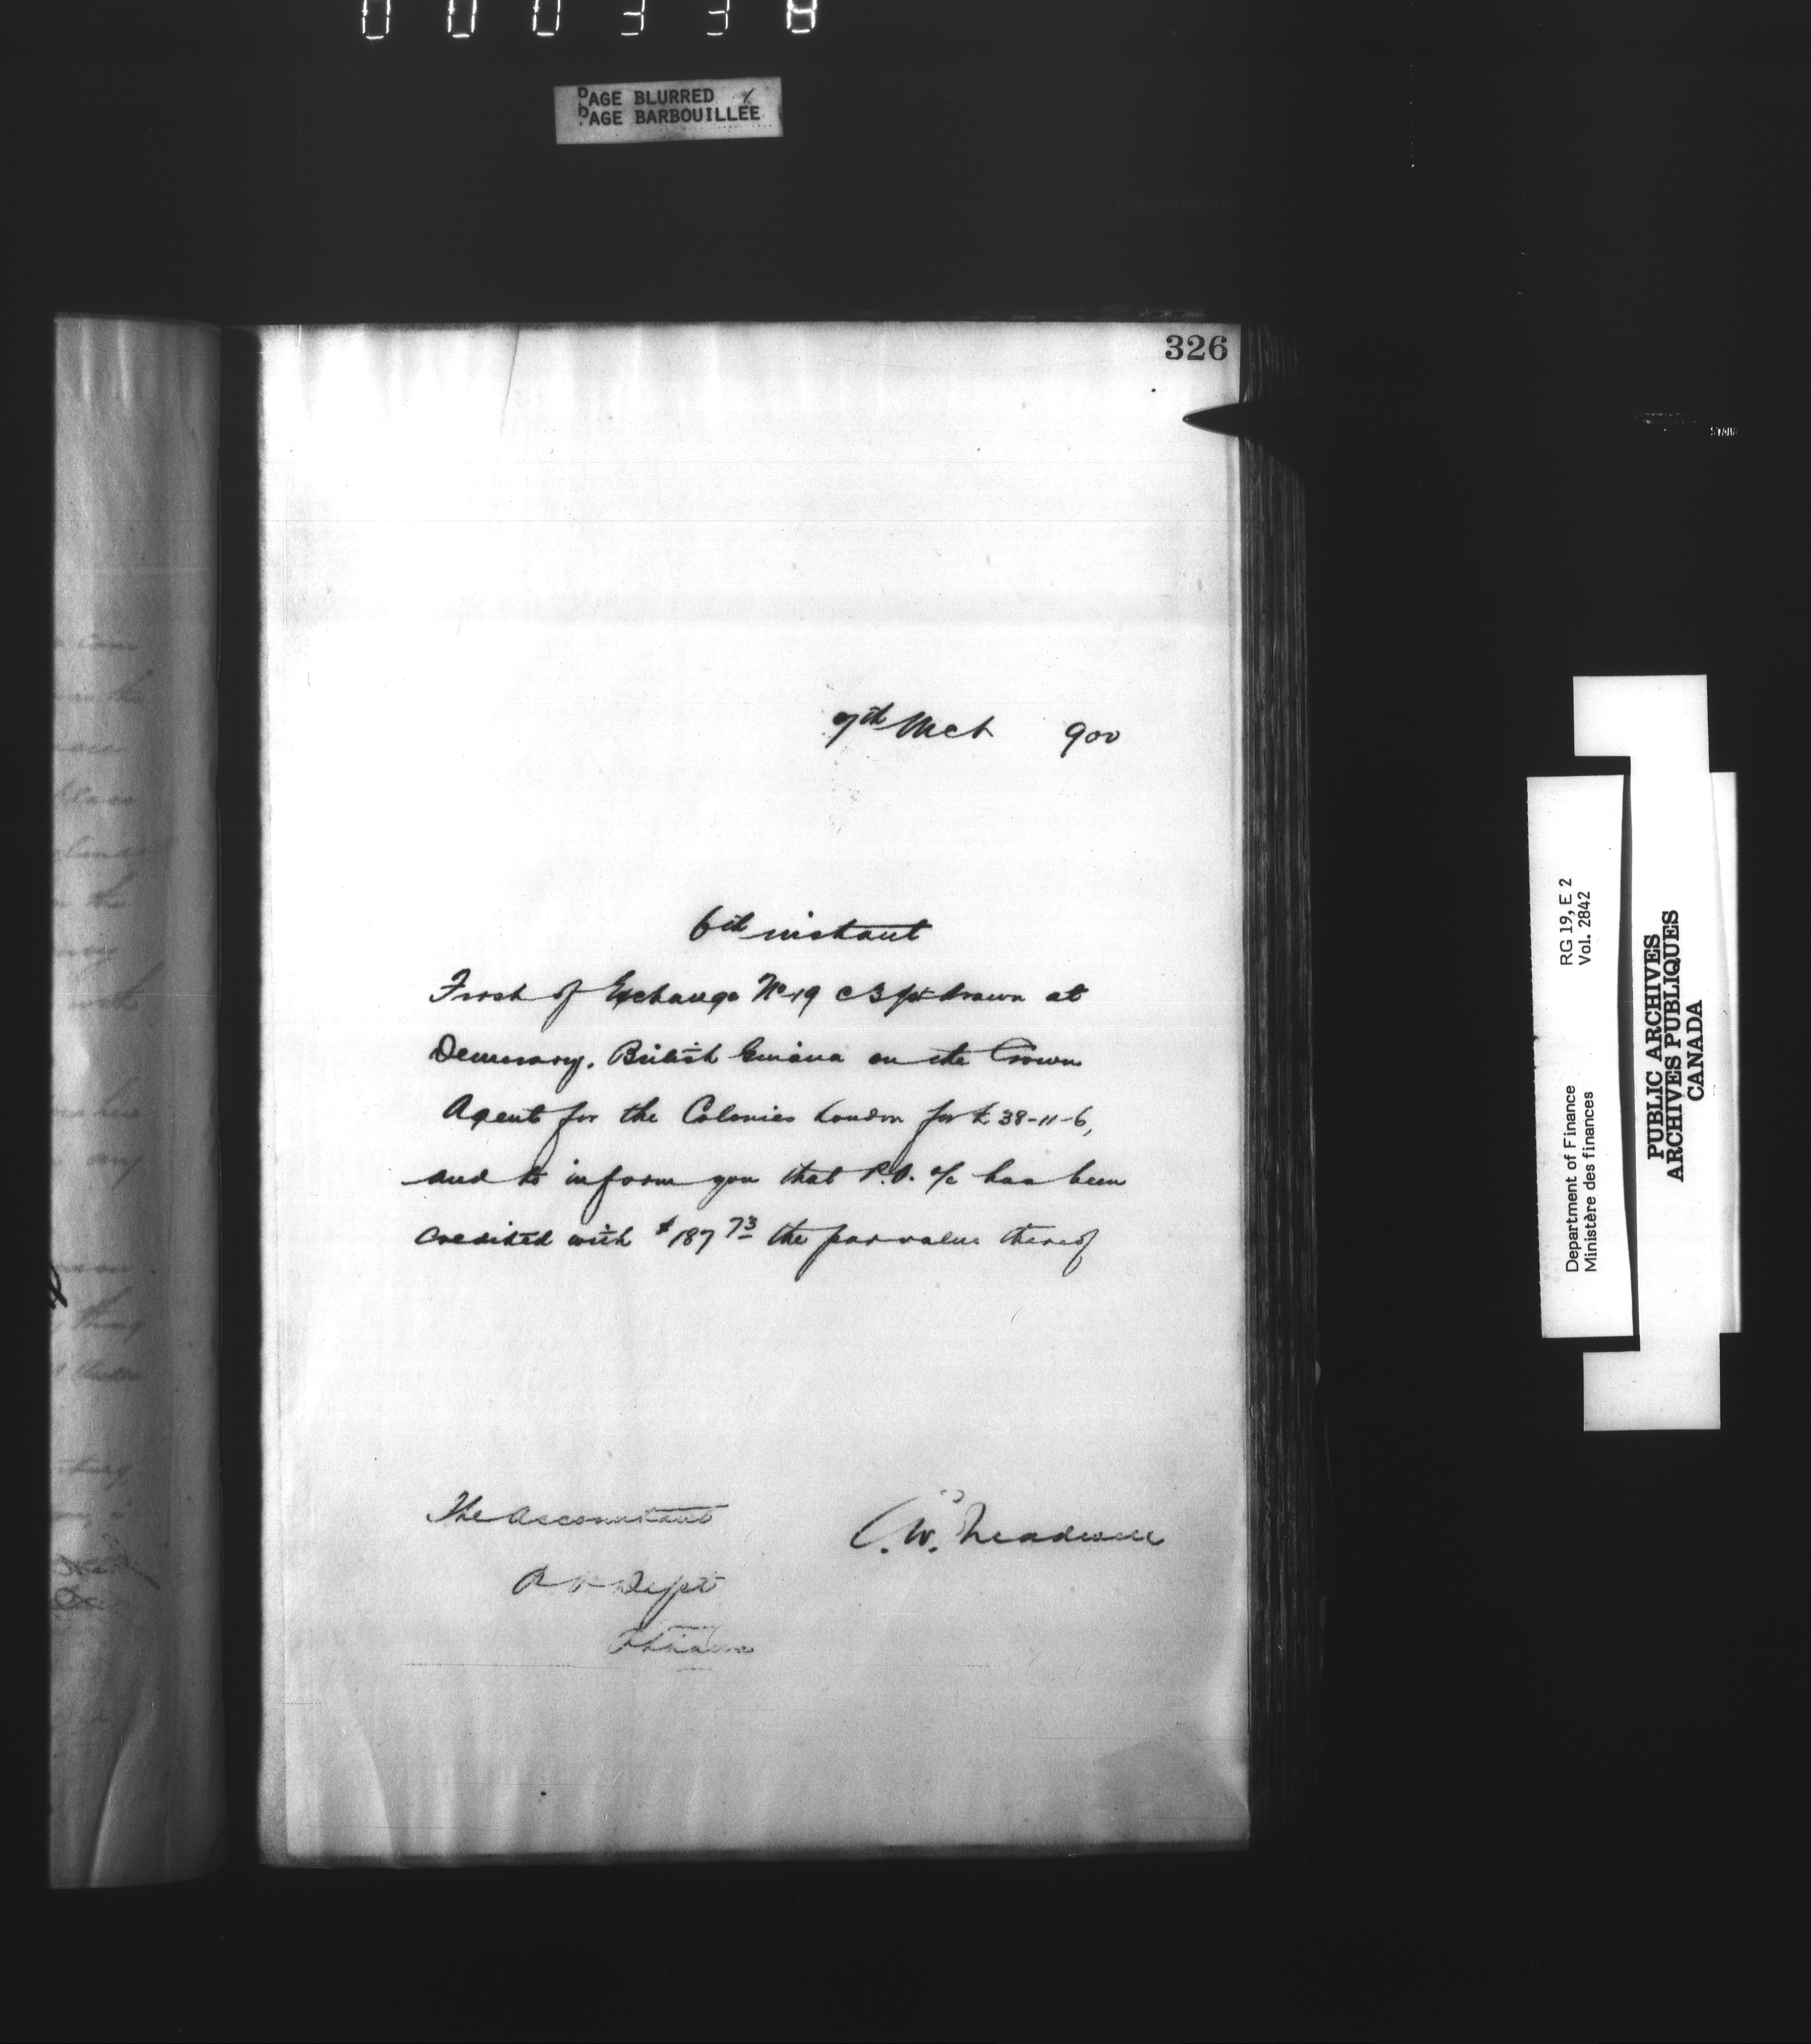 000338
PAGE BLURRED
PAGE BARBOUILLEE
326
7th Mch 900
6th instant
First of Exchange No 19 drawn at
Demerary. British Guiana on the Crown
Agents for the Colonies London for £ 38-11-6,
and to inform you that P.O. a/c has been
credited with $187 73 the par value thereof
The Accountant
P O Dept
Ottawa
C. W. Treadwell
RG 19, E 2
Vol. 2842
Department of Finance
Ministère des finances
PUBLIC ARCHIVES
ARCHIVES PUBLIQUES
CANADA